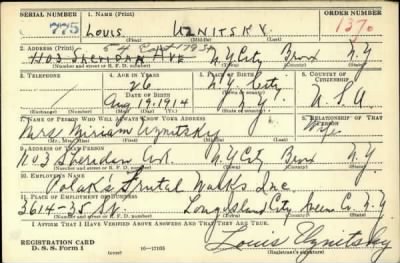 SERIAL NUMBER 1. NAME (Print) ORDER NUMBER
775 LOUIS UZNITSKY 1370
(First) (Middle) (Last)
2. ADDRESS (Print) 54
1103 SHERIDAN AVE N.Y City Bronx N.Y
(Number and street or R. F. D. number) (Town) (County) (State)
3. TELEPHONE 4. AGE IN YEARS 5. PLACE OF BIRTH 6. COUNTRY OF CITIZENSHIP
26 N.Y. City
DATE OF BIRTH (Town or county)
Aug 19. 1914 N.Y. U.S.A.
(Exchange) (Number) (Mo.) (Day) (Yr.) (State or country)
7. NAME OF PERSON WHO WILL ALWAYS KNOW YOUR ADDRESS 8. RELATIONSHIP OF THAT PERSON
Mrs Miriam Uznitsky Wife
(Mr., Mrs., Miss) (First) (Middle) (Last)
9. ADDRESS OF THAT PERSON
1103 Sheridan Ave. N.Y City Bronx N.Y
(Number and street or R. F. D. number) (Town) (County) (State)
10. EMPLOYER'S NAME
Polak's Frutal Works Inc.
11. PLACE OF EMPLOYMENT OR BUSINESS
3614-35 St. Long Island City Queens Co. N.Y
(Number and street or R. F. D. number) (Town) (County) (State)
I AFFIRM THAT I HAVE VERIFIED ABOVE ANSWERS AND THAT THEY ARE TRUE.
REGISTRATION CARD
D. S. S. Form 1 (over) 16-17105 Louis Uznitsky
(Registrant's signature)